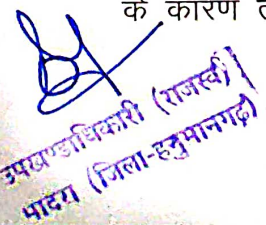 के कारण
उपखण्डाधिकारी (राजस्व)
भादरा (जिला-हनुमानगढ़)